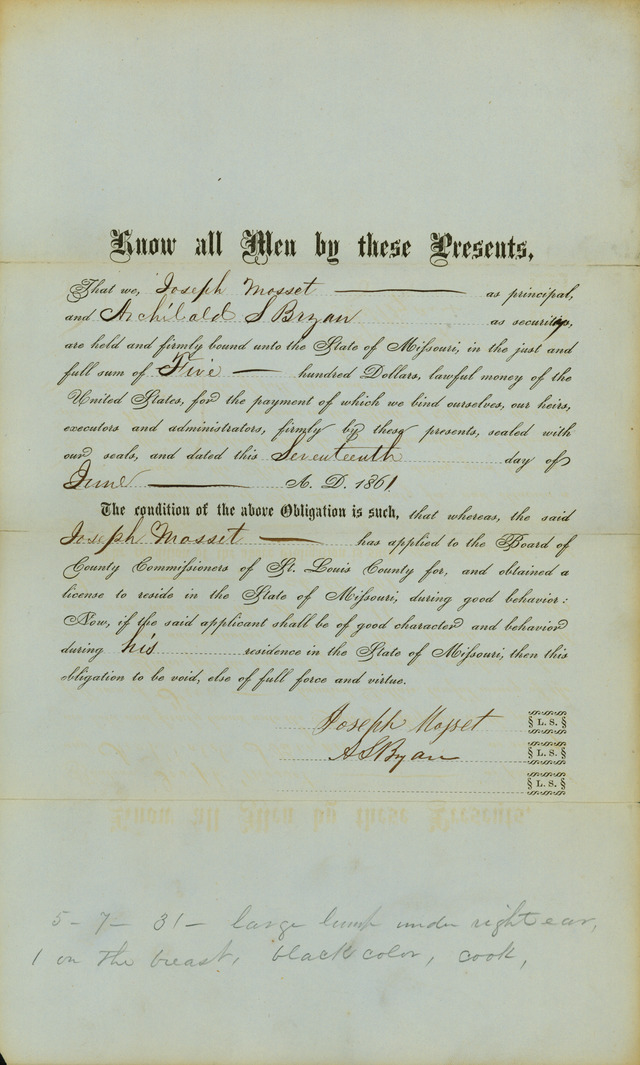 Know all Men by these Presents,
That we, Joseph Mosset as principal,
and Archibald S Bryan as security,
are held and firmly bound unto the State of Missouri, in the just and
full sum of Five hundred Dollars, lawful money of the
United States, for the payment of which we bind ourselves, our heirs,
executors and administrators, firmly by these presents, sealed with
our seals, and dated this Seventeenth day of
June A. D. 1861
The condition of the above Obligation is such, that whereas, the said
Joseph Mosset has applied to the Board of
County Commissioners of St. Louis County for, and obtained a
license to reside in the State of Missouri, during good behavior:
Now, if the said applicant shall be of good character and behavior
during his residence in the State of Missouri, then this
obligation to be void, else of full force and virtue.
Joseph Mosset L. S.
A S Bryan L. S.
L. S.
5 - 7 - 31 - large lump under right ear,
1 on the breast, black color, cook,